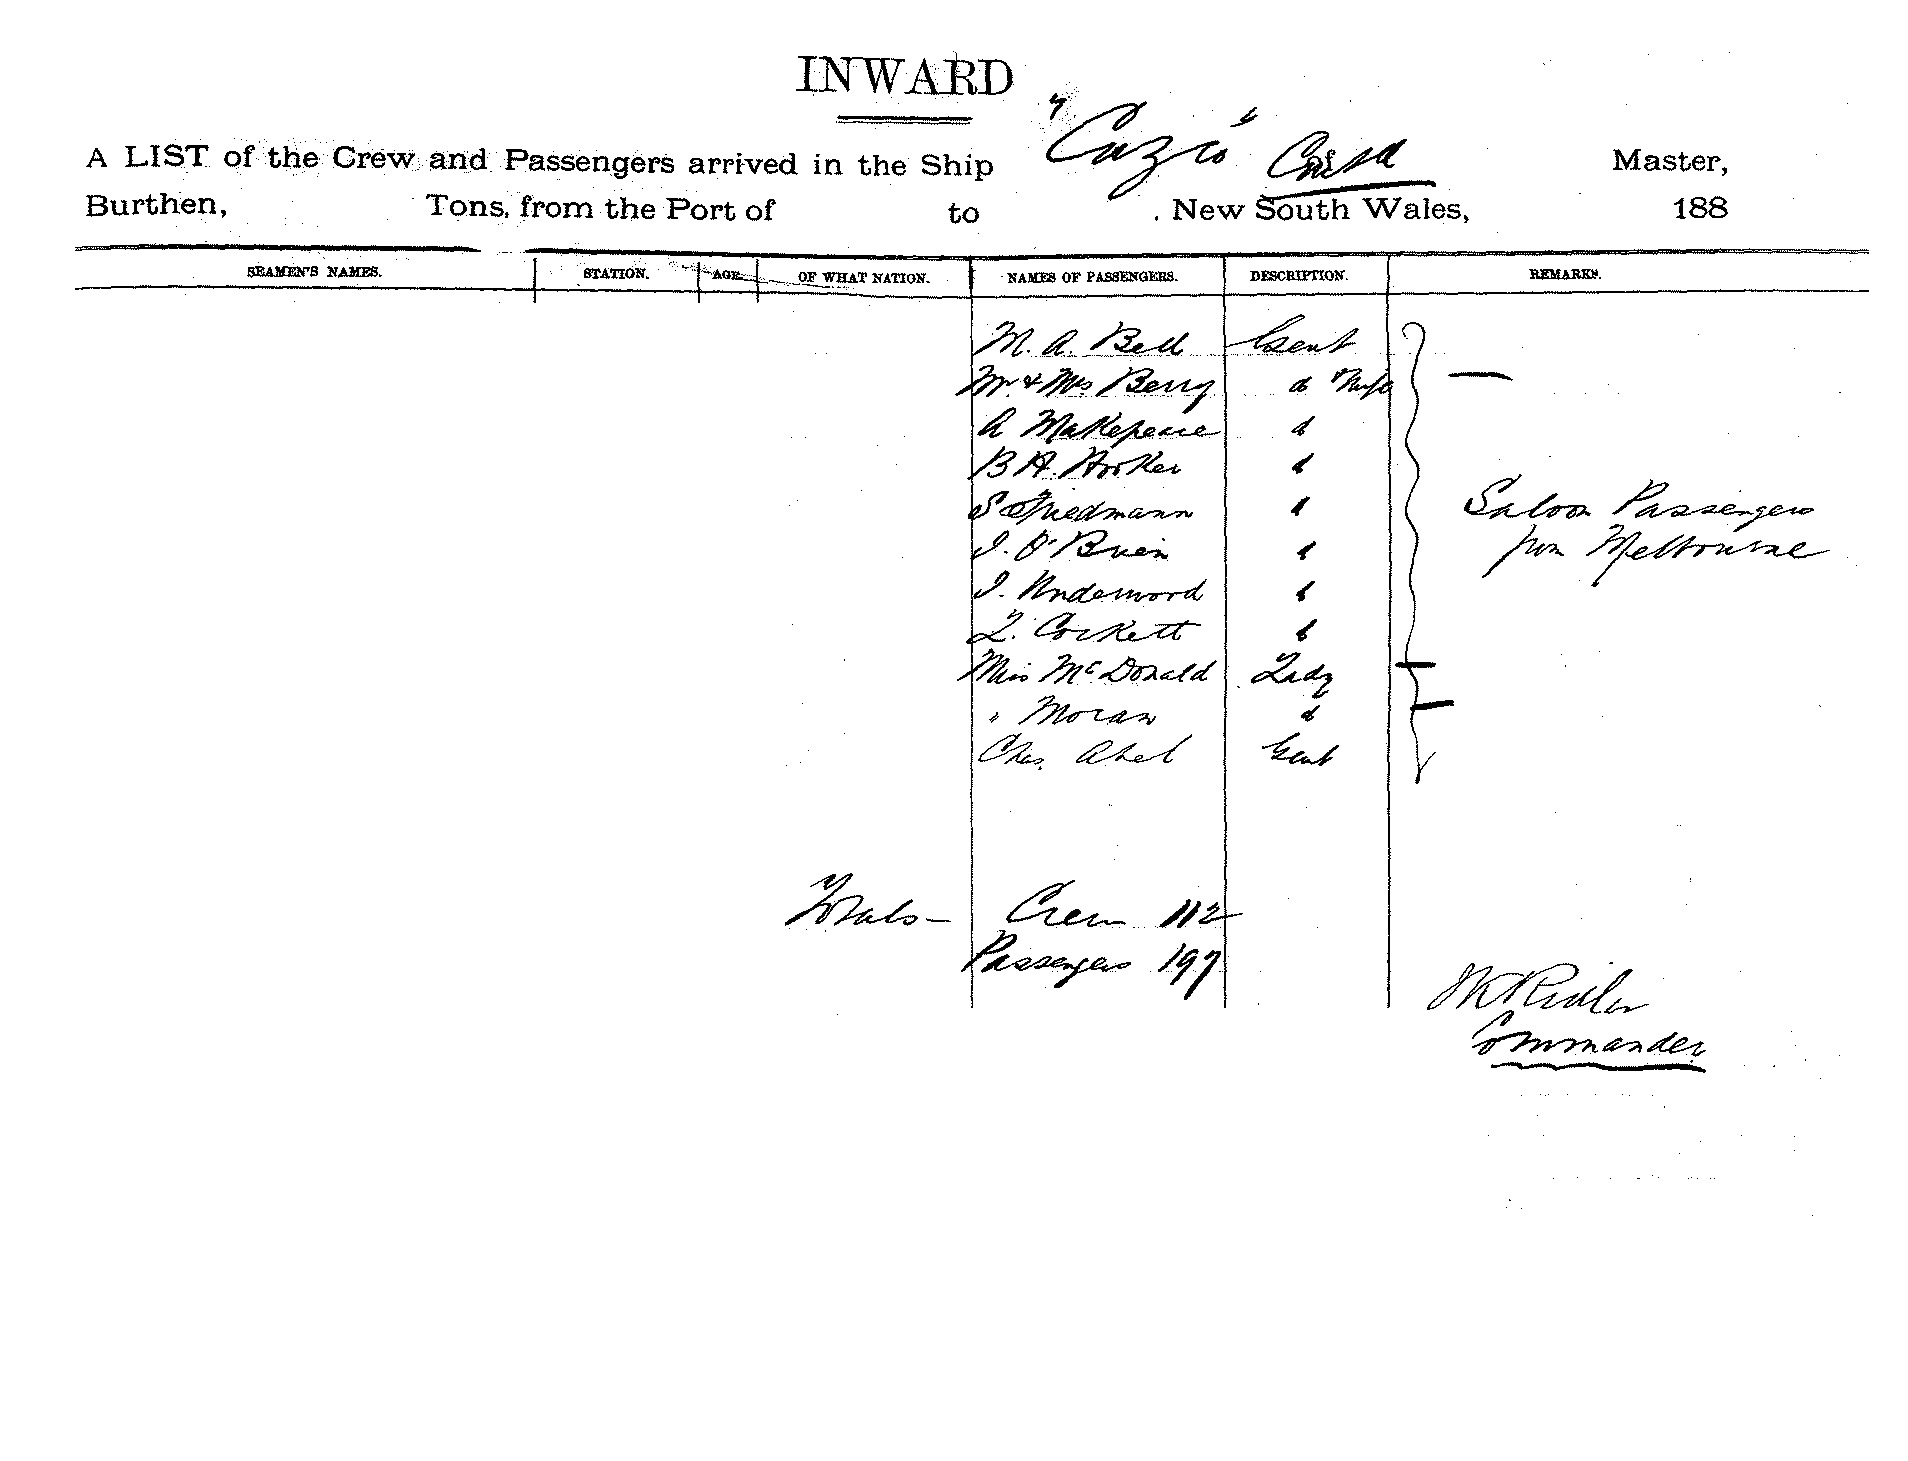 INWARD
A LIST of the Crew and Passengers arrived in the Ship "Cuzco" Contd Master,
Burthen, Tons, from the Port of to , New South Wales, 188
SEAMEN'S NAMES. STATION. AGE. OF WHAT NATION. NAMES OF PASSENGERS. DESCRIPTION. REMARKS.
M. A. Bell Gent
Mr & Mrs Berry do & Wife
A Makepeace do
B H. Hooker do
S Friedmann do
J. O'Brien do
J. Underwood do
T. Cockett do
Saloon Passengers
from Melbourne
Miss McDonald Lady
" Moran do
Chas. Abel Gent
Totals - Crew 112
Passengers 197
Commander